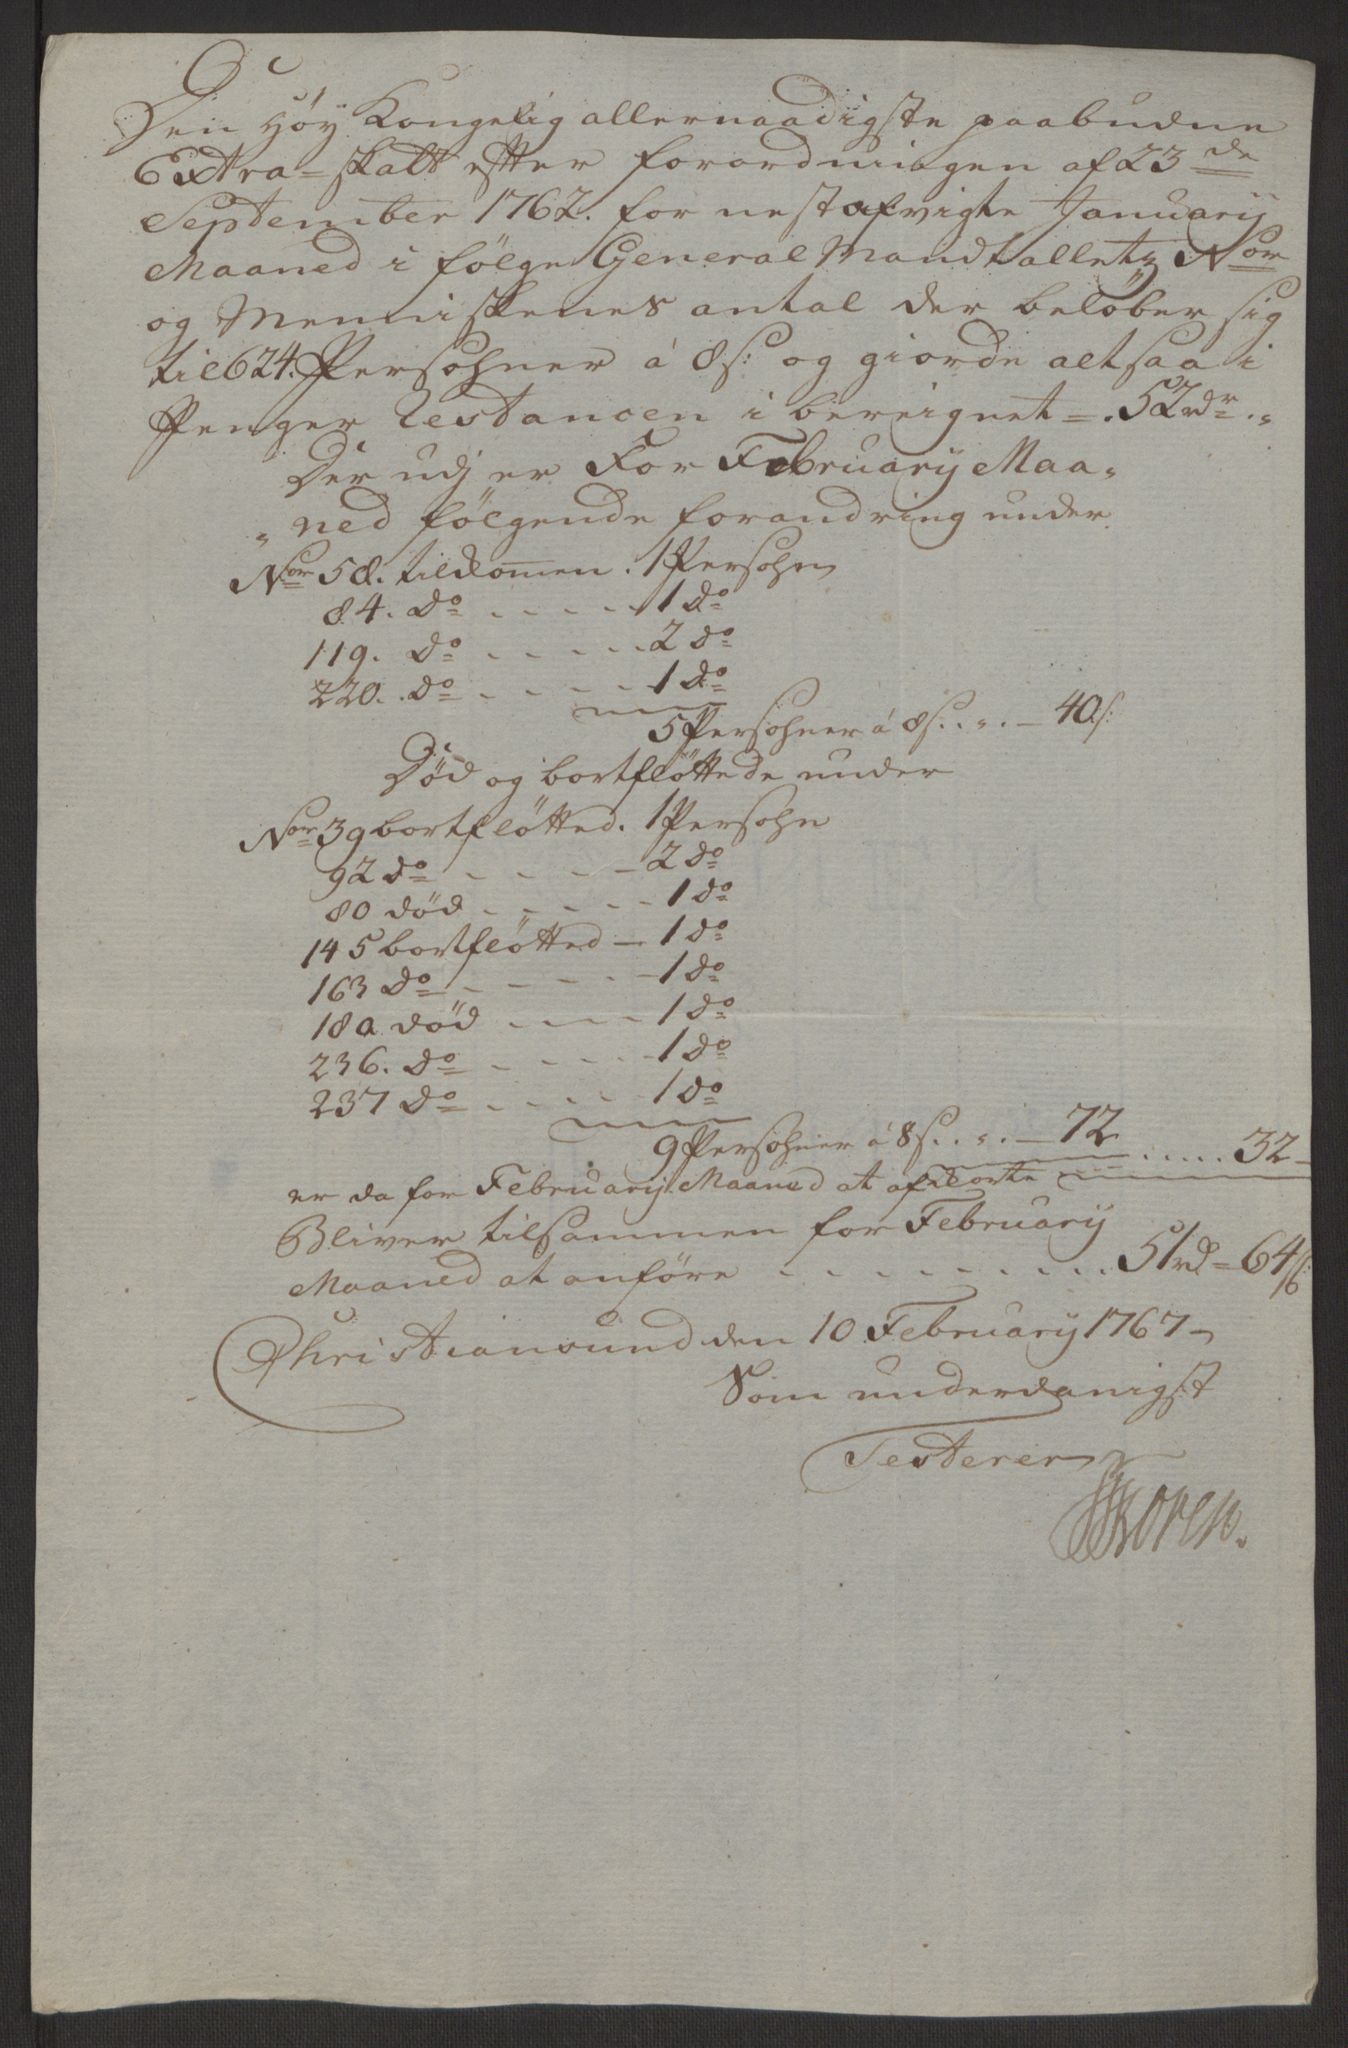 Den Høy Kongelig allernaadigste paabudne
Extra-skatt efter forordningen af 23de
September 1762. for nest afvigte January
Maaned i følge General Mandtallets Nor
og Menniskenes antal der beløber sig
til 624. Persohner á 8 s: og giorde altsaa i
Penger Restancen i bereignet = . 52 rdr . "
Der udj er For February Maa-
"ned følgende forandring under
Nor 58. tilkomen . 1 Persohn
84. do - - - - - 1 do
119. do - - - - - 2 do
220. do - - - - - 1 do
5 Persohner á 8 s. . " . - 40 s:
Død og bortfløttede under
Nor 39 bortfløtted. 1 Persohn
92 do - - - - - 2 do
80 død - - - - - 1 do
145 bortfløtted - 1 do
163 do - - - - - 1 do
180 død - - - - 1 do
236. do - - - - - 1 do
237 do - - - - - 1 do
9 Persohner á 8 s. . " . - 72 . . . . . 32 -
er da for February Maaned at afkorte
Bliver tilsammen for February
Maaned at anføre - - - - - - - - - 51 rd = 64 s:
Christiansund den 10 February 1767 -
Som underdanigst
Testerer
Koren.